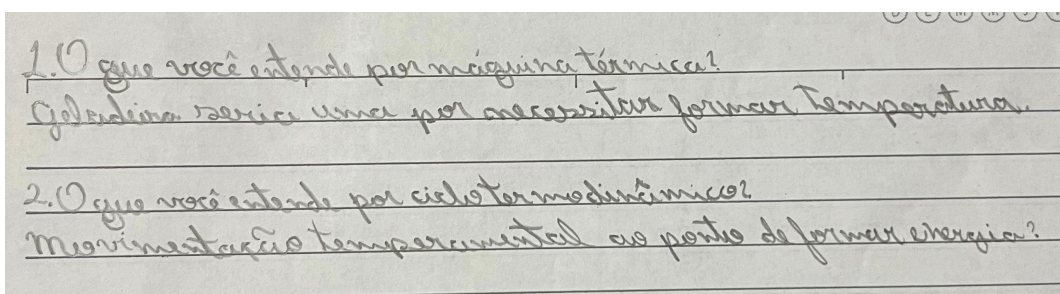 1. O que você entende por máquina térmica?
Geladeira seria uma por necessitar formar temperatura.
2. O que você entende por ciclo termodinâmico?
Movimentação temperamental ao ponto de formar energia?